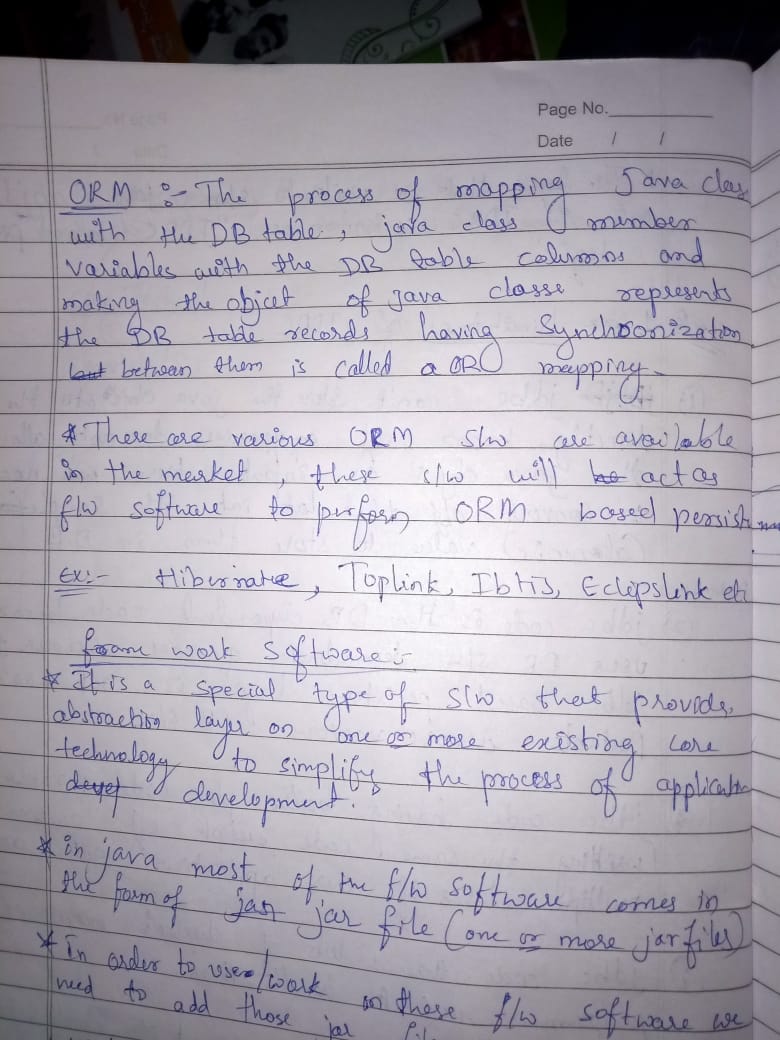 Page No.
Date / /
ORM :- The process of mapping Java clas
with the DB table, java class member
variables with the DB table columns and
making the object of java classe represents
the DB table records having Synchoonization
but between them is called a OR mapping.
* There are various ORM S/w are available
in the market, these s/w will be act as
f/w software to perform ORM based persist
Ex:- Hibernate, Toplink, Ibtis, Eclipslink etc
frame work Software :-
* It is a special type of S/w that provides
abstraction layer on one or more existing core
technology to simplify the process of applicatio
devef development.
* in java most of the f/w software comes in
the form of jar jar file (one or more jar files)
* In order to use/work on these f/w software we
need to add those jar